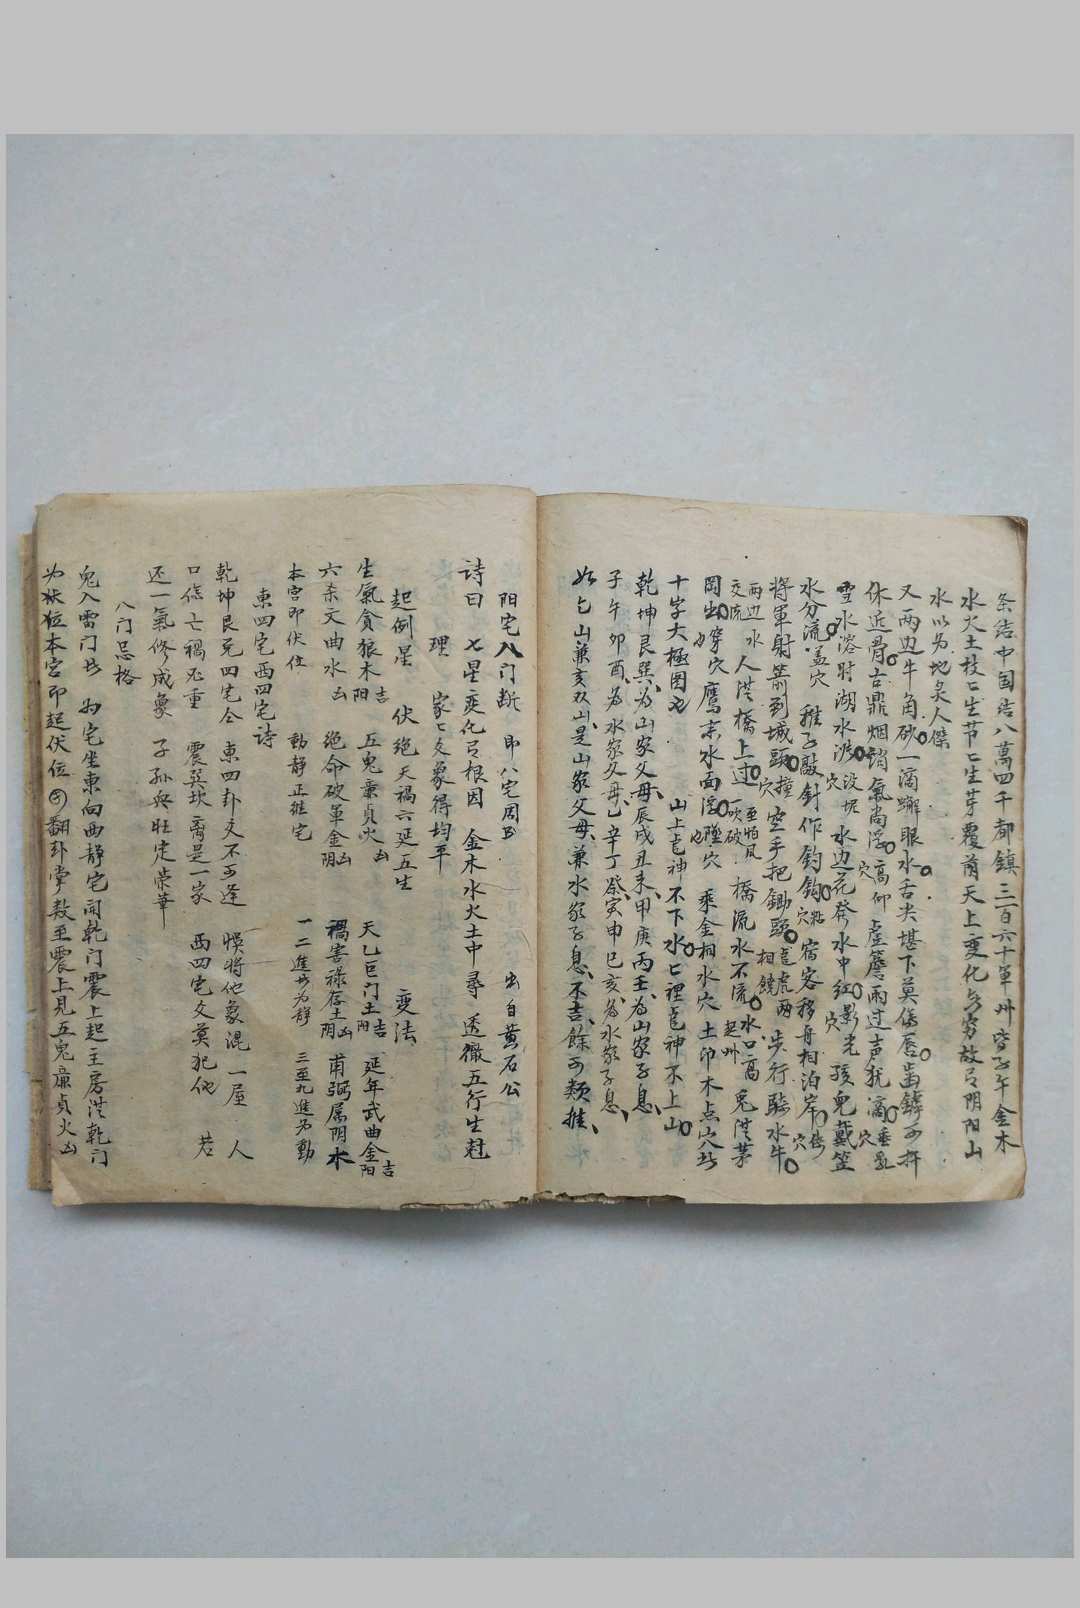 条结中国结八萬四千都鎮三百六十軍州皆子午金木
水火土枝亡生节亡生芽覆荫天上变化无穷故有阴阳山
水以为地灵人傑
又两边牛角砂一滴蟹眼水舌尖堪下莫伤唇齿鏬可拚
休近骨古鼎烟消氣尚浮高仰穴虚簷雨过声犹滴垂乳穴
雪水溶时湖水渡没坭穴水边花發水中红影光穴孩兒戴笠
水分流盖穴稚子敲针作钓鈎粘穴宿客移舟相泊岸倚穴
将軍射箭到城頭撞穴空手把锄頭龍虎两相饒步行騎水牛
两边水交流人洪橋上过至怕風吹破橋流水不流水口高起州兔洪茅
岡出穿穴也鷹来水面浮墜穴也乘金相水穴土印木点穴訣
十字大極图也山上龍神不下水亡裡龍神不上山
乾坤艮巽為山家父母辰戌丑未甲庚丙壬為山家子息
子午卯酉為水家父母乙辛丁癸寅申巳亥為水家子息
如乙山兼亥双山是山家父母兼水家子息不吉餘可類推
阳宅八门断即八宅周书出自黄石公
诗曰七星変化有根因金木水火土中尋透徹五行生尅
理家亡爻象得均平
起例星伏绝天禍六延五生変法
生氣貪狼木阳吉五鬼亷貞火凶天乙巨门土阳吉延年武曲金阳吉
六杀文曲水凶绝命破軍金阴凶禍害祿存土阴凶甫弼属阴木
本宫即伏位動静正雜宅一二進为静三至九進为動
東四宅西四宅诗
乾坤艮兑四宅仝東四卦爻不可逢悞将他象混一屋人
口伤亡禍必重震巽坎离是一家西四宅爻莫犯他若
还一氣修成象子孙興旺定荣華
八门忌格
鬼入雷门如为宅坐東向西静宅開乾门震上起主房洪乾门
为伏位本宫即起伏位翻卦掌数至震上見五鬼亷貞火凶